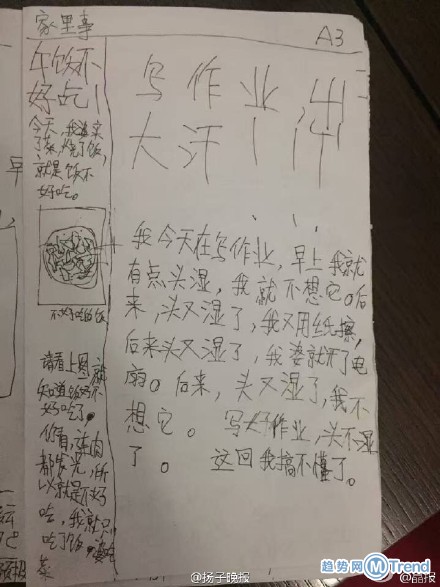 家里事
A3
午饭不
好吃!
今天,我婆买
了菜,烧了饭,
就是饭不
好吃。
不好吃的饭
请看上图就
知道饭好不
好吃了。
你看,连肉
都发光,所
以就是不好
吃,我就只
吃了饭
菜
写作业,出
大汗!!
我今天在写作业,早上我就
有点头湿,我就不想它。后
来,头又湿了,我又用纸擦,
后来头又湿了,我婆就开了电
扇。后来,头又湿了,我不
想它。写好作业,头不湿
了。这回我搞不懂了。
早
@扬子晚报
@晶报
趋势网 MTrend